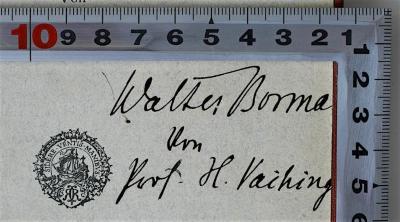 Von
10 9 8 7 6 5 4 3 2 1
1
2
3
4
5
Walter Borma
Von
Prof. H. Vaihing